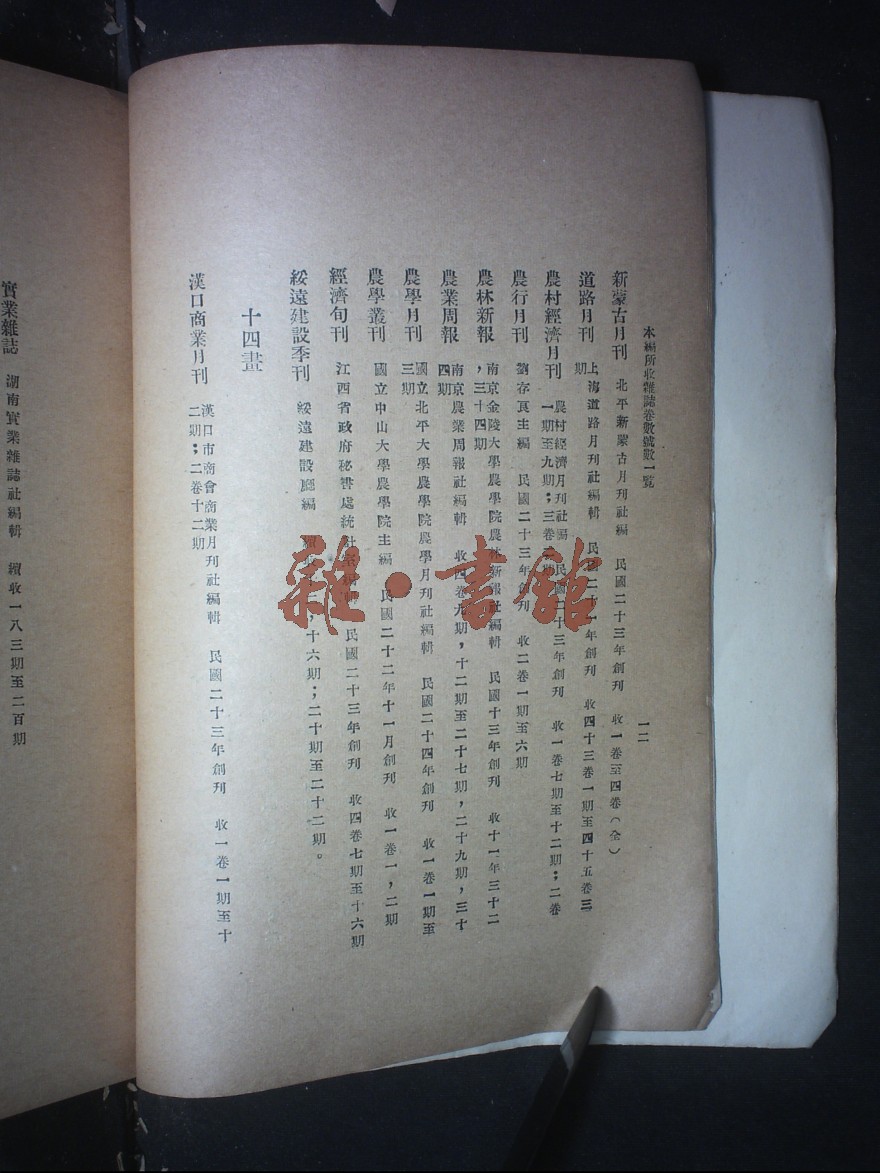 本編所收雜誌卷數號數一覽
一二
新蒙古月刊　北平新蒙古月刊社編　民國二十三年創刊　收一卷至四卷（全）
道路月刊　上海道路月刊社編輯　民國二十一年創刊　收四十三卷一期至四十五卷三
期
農村經濟月刊　農村經濟月刊社編　民國二十三年創刊　收一卷七期至十二期；二卷
一期至九期；三卷
農行月刊　劉存良主編　民國二十三年創刊　收二卷一期至六期
農林新報　南京金陵大學農學院農林新報社編輯　民國十三年創刊　收十一年三十二
，三十四期
農業周報　南京農業周報社編輯　收四卷九期，十二期至二十七期，二十九期，三十
四期
農學月刊　國立北平大學農學院農學月刊社編輯　民國二十四年創刊　收一卷一期至
三期
農學叢刊　國立中山大學農學院主編　民國二十二年十一月創刊　收一卷一，二期
經濟旬刊　江西省政府秘書處統計室　民國二十三年創刊　收四卷七期至十六期
綏遠建設季刊　綏遠建設廳編　續收，十六期；二十期至二十二期。
十四畫
漢口商業月刊　漢口市商會商業月刊社編輯　民國二十三年創刊　收一卷一期至十
二期；二卷十二期
實業雜誌　湖南實業雜誌社編輯　續收一八三期至二百期
雜·書館